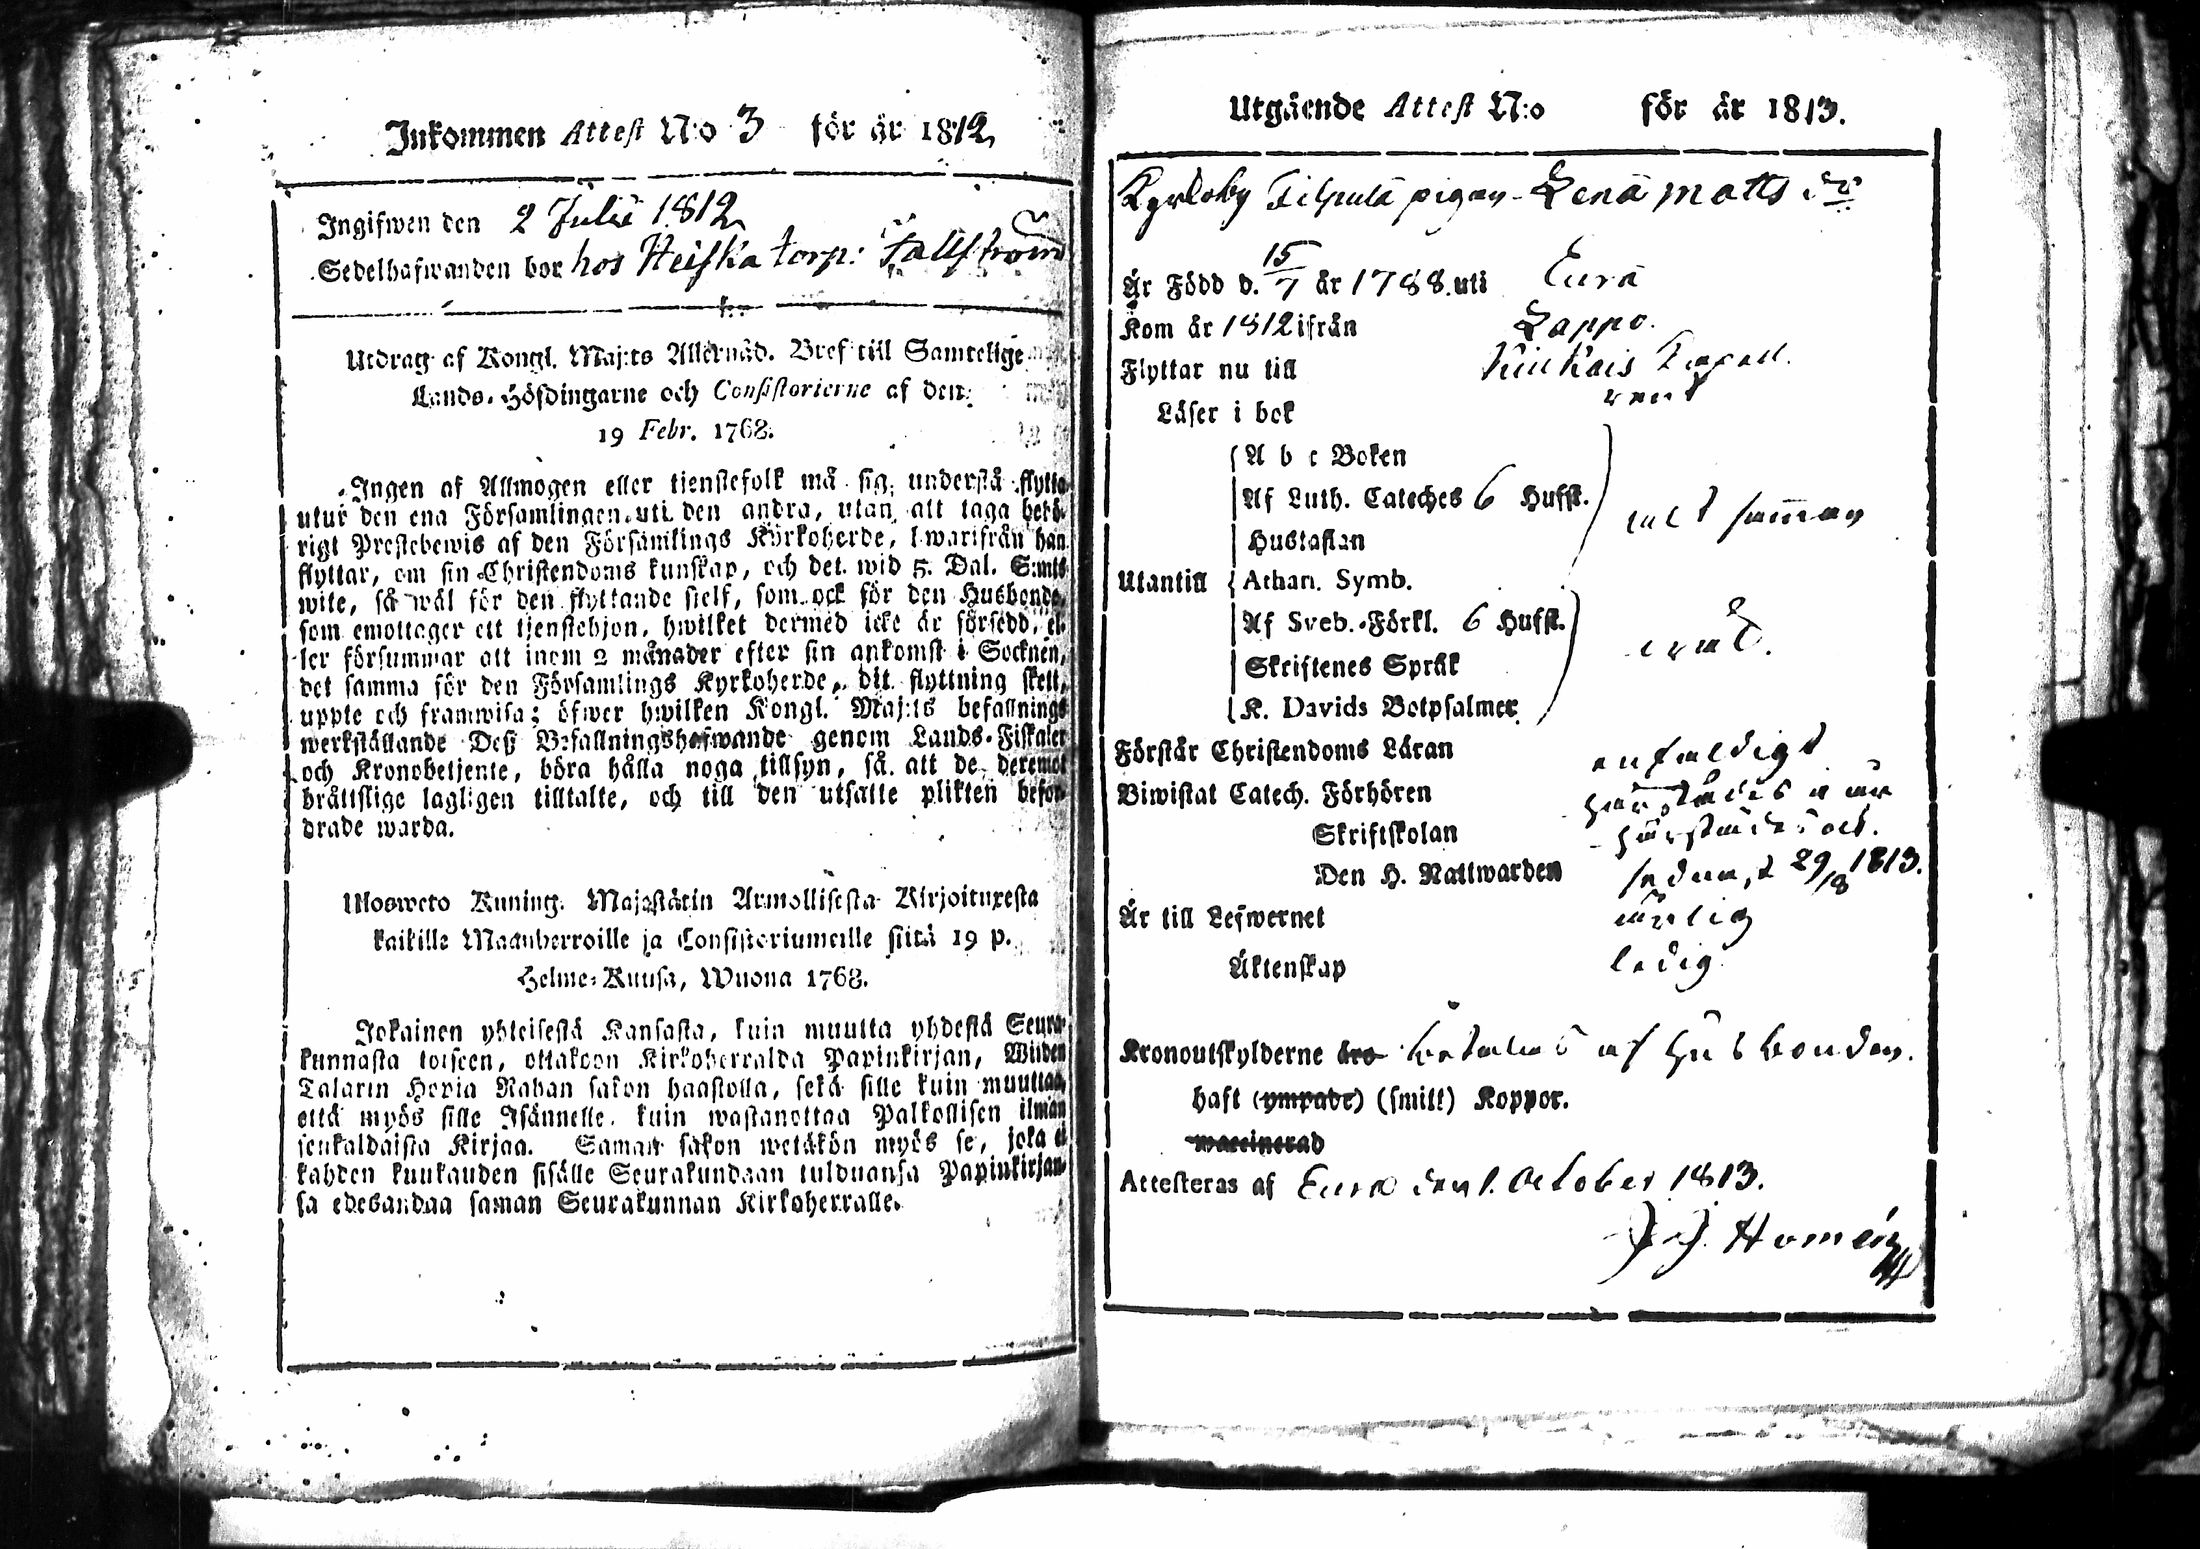 Inkommen Attest N:o 3 för år 1812
Ingifwen den 2 Julii 1812
Sedelhafwanden bor hos Heiska torp: Fallström
Utdrag af Kongl. Maj:ts Allernåd. Bref till Samtelige
Lands-Höfdingarne och Consistorierne af den
19 Febr. 1768.
Ingen af Allmogen eller tienstefolk må sig understå flytta
utur den ena Församlingen uti den andra, utan att taga behö-
rigt Prestebewis af den Församlings Kyrkoherde, hwarifrån han
flyttar, om sin Christendoms kunskap, och det wid 5 Dal. S:mts
wite, så wäl för den flyttande sielf, som ock för den Husbonde,
som emottager ett tjenstehjon, hwilket dermed icke är försedd, el-
ler försummar att inom 2 månader efter sin ankomst i Socknen,
det samma för den Församlings Kyrkoherde, dit flyttning skett,
uppte och framwisa; öfwer hwilken Kongl. Maj:ts befallnings
werkställande Deß Befallningshafwande genom Lands-Fiskaler
och Kronobetjente, böra hålla noga tillsyn, så att de deremot
bråttslige lagligen tilltalte, och till den utsatte plikten befor-
drade warda.
Ulosweto Kuning. Majestätin Armollisesta Kirjoituxesta
kaikille Maanherroille ja Consistoriumeille siitä 19 p.
Helme-Kuusa, Wuona 1768.
Jokainen yhteisestä Kansasta, kuin muutta yhdestä Seura-
kunnasta toiseen, ottakoon Kirkoherralda Papinkirjan, Wiiden
Talarin Hopia Rahan sakon haastolla, sekä sille kuin muuttaa,
että myös sille Isännelle, kuin wastanottaa Palkollisen ilman
senkaldaista Kirjaa. Saman sakon wetäkön myös se, joka ei
kahden kuukauden sisälle Seurakundaan tulduansa Papinkirjan-
sa edesandaa saman Seurakunnan Kirkoherralle.
Utgående Attest N:o för år 1813.
Kyrkoby Filpula pigan Lena Matts dr
Är Född d. 15/7 år 1788 uti Eura
Kom år 1812 ifrån Lappo.
Flyttar nu till Kiukais Capell.
Läser i bok rent
A b c Boken
Af Luth. Cateches 6 Hufst.
Hustaflan
alt samman
Utantill Athan. Symb.
Af Sveb. Förkl. 6 Hufst.
Skriftenes Språk
K. Davids Botpsalmer
Förstår Christendoms Läran enfaldigt
Biwistat Catech. Förhören härstädes i år
Skriftskolan härstädes ock.
Den H. Nattwarden sednast 29/8 1813.
Är till Lefwernet ärlig
Äktenskap ledig
Kronoutskylderne äro betalas af husbonden.
haft (ympade) (smitt) Koppor.
waccinerad
Attesteras af Eura den 1. October 1813.
Homén